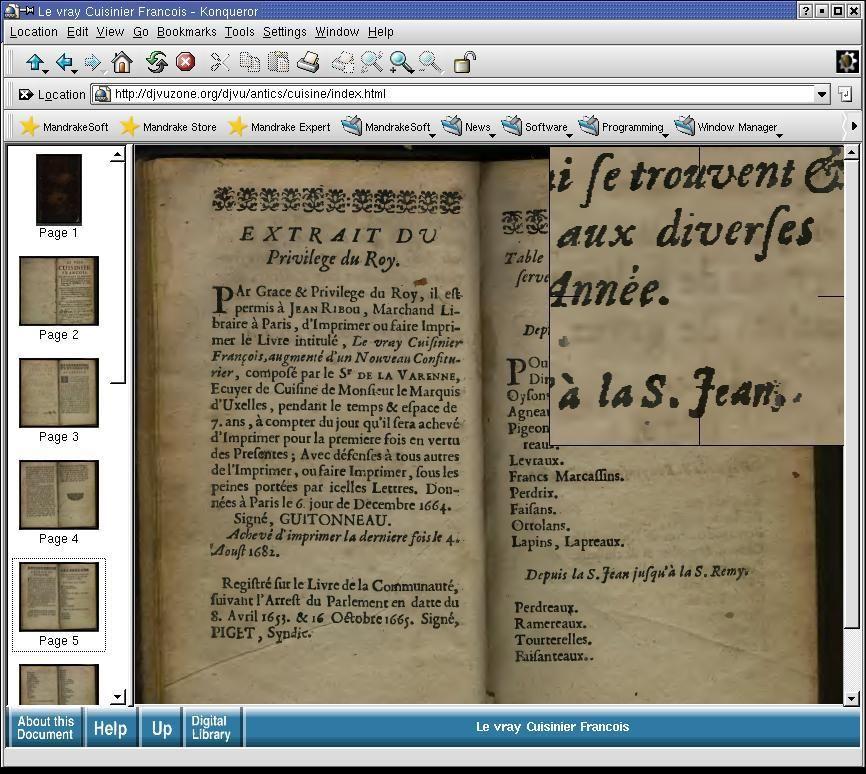 Le vray Cuisinier Francois - Konqueror
Location Edit View Go Bookmarks Tools Settings Window Help
Location http://djvuzone.org/djvu/antics/cuisine/index.html
MandrakeSoft Mandrake Store Mandrake Expert MandrakeSoft News Software Programming Window Manager
Page 1
Page 2
Page 3
Page 4
Page 5
EXTRAIT DU
Privilege du Roy.
PAr Grace & Privilege du Roy, il est
permis à JEAN RIBOU, Marchand Li-
braire à Paris, d'Imprimer ou faire Impri-
mer le Livre intitulé, Le vray Cuiſinier
François, augmenté d'un Nouveau Confitu-
rier, compoſé par le Sr DE LA VARENNE,
Ecuyer de Cuiſine de Monſieur le Marquis
d'Uxelles, pendant le temps & eſpace de
7. ans, à compter du jour qu'il ſera achevé
d'Imprimer pour la premiere fois en vertu
des Preſentes; Avec défenſes à tous autres
de l'Imprimer, ou faire Imprimer, ſous les
peines portées par icelles Lettres. Don-
nées à Paris le 6. jour de Decembre 1664.
Signé, GUITONNEAU.
Achevé d'imprimer la derniere fois le 4.
Aouſt 1682.
Regiſtré ſur le Livre de la Communauté,
ſuivant l'Arreſt du Parlement en datte du
8. Avril 1653. & 16 Octobre 1665. Signé,
PIGET, Syndic.
Table
ſerve
Dep
POu
Din
Oyſon
Agneau
Pigeon
reaux.
Levraux.
Francs Marcaſſins.
Perdrix.
Faiſans.
Ortolans.
Lapins, Lapreaux.
Depuis la S. Jean juſqu'à la S. Remy.
Perdreaux.
Ramereaux.
Tourterelles.
Faiſanteaux.
i ſe trouvent &
aux diverſes
Année.
à la S. Jean.
About this
Document
Help
Up
Digital
Library
Le vray Cuisinier Francois